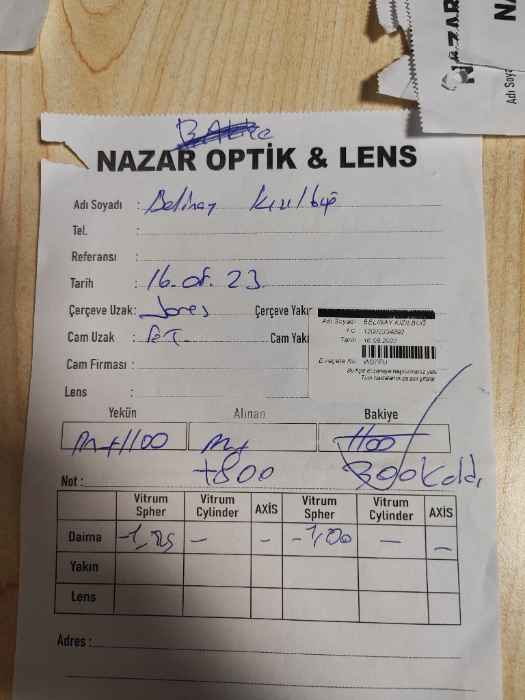 NAZAR
Adı Soya
NAZAR OPTİK & LENS
Adı Soyadı : Belinay Kızılbuğ
Tel. :
Referansı :
Tarih : 16.08.23
Çerçeve Uzak : Jones Çerçeve Yakın
Cam Uzak : Cam Yakı
Cam Firması :
Lens :
Adı Soyadı : BELİNAY KIZILBUĞ
Tarih 16.08.2023
E-reçete No
Yekün Alınan Bakiye
M+1100 M+ 1100
+800 300 Kaldı
Not :
Vitrum Spher Vitrum Cylinder AXİS Vitrum Spher Vitrum Cylinder AXİS
Daima -1,25 – – -1,00 – –
Yakın
Lens
Adres :